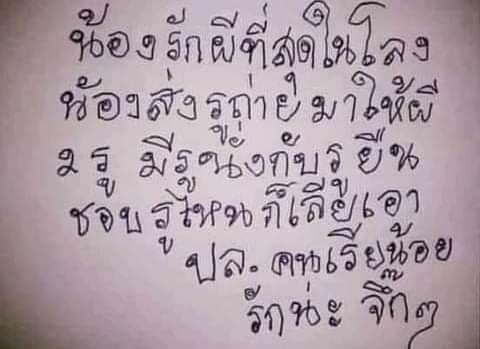 น้องรักผีที่สุดในโลง
น้องส่งรูถ่ายุมาให้ผี
2 รู มีรูนั่งกับรูยืน
ชอบรูไหนก็เลียเอา
ปล. คนเรียน้อย
รักน่ะ จึ๊กๆ